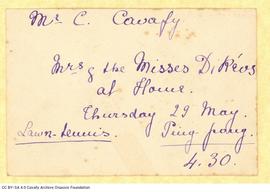 Mr C. Cavafy
Mrs & the Misses D. Kévs
at Home.
Thursday 29 May.
Lawn-tennis. Ping pong.
4.30.
CC BY-SA 4.0 Cavafy Archive Onassis Foundation